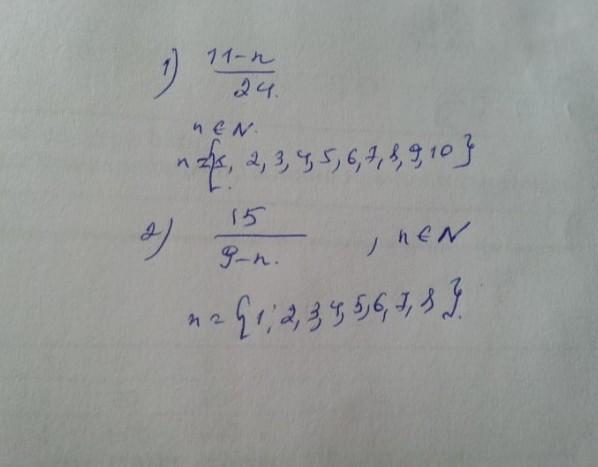 1) 11-n
24.
n ∈ N.
n = {1, 2, 3, 4, 5, 6, 7, 8, 9, 10}
2) 15
9-n. , n ∈ N
n = {1; 2, 3, 4, 5, 6, 7, 8}.